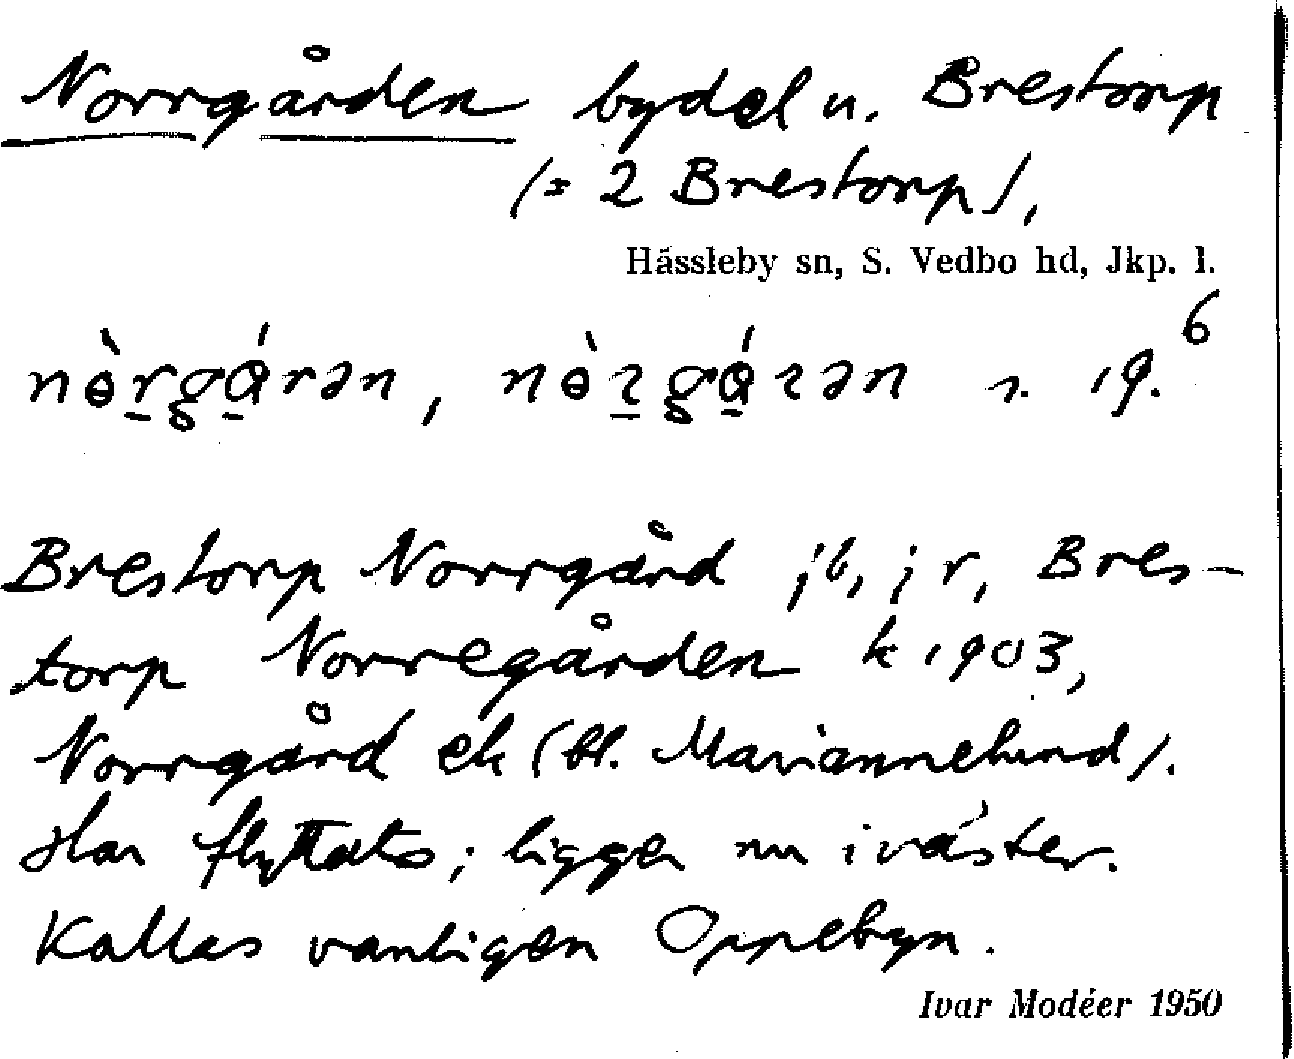 Norrgården bydel u. Brestorp
(= 2 Brestorp),
Hässleby sn, S. Vedbo hd, Jkp. l.
nɵ̀r̠gɑ̠́rən, nɵ̀ɿ̠gɑ̠́ɿən n. 19.6
Brestorp Norrgård jb, jr, Bres-
torp Norregården k 1903,
Norrgård ek (bl. Mariannelund).
Har flyttats; ligger nu i väster.
Kallas vanligen Oppebyn.
Ivar Modéer 1950